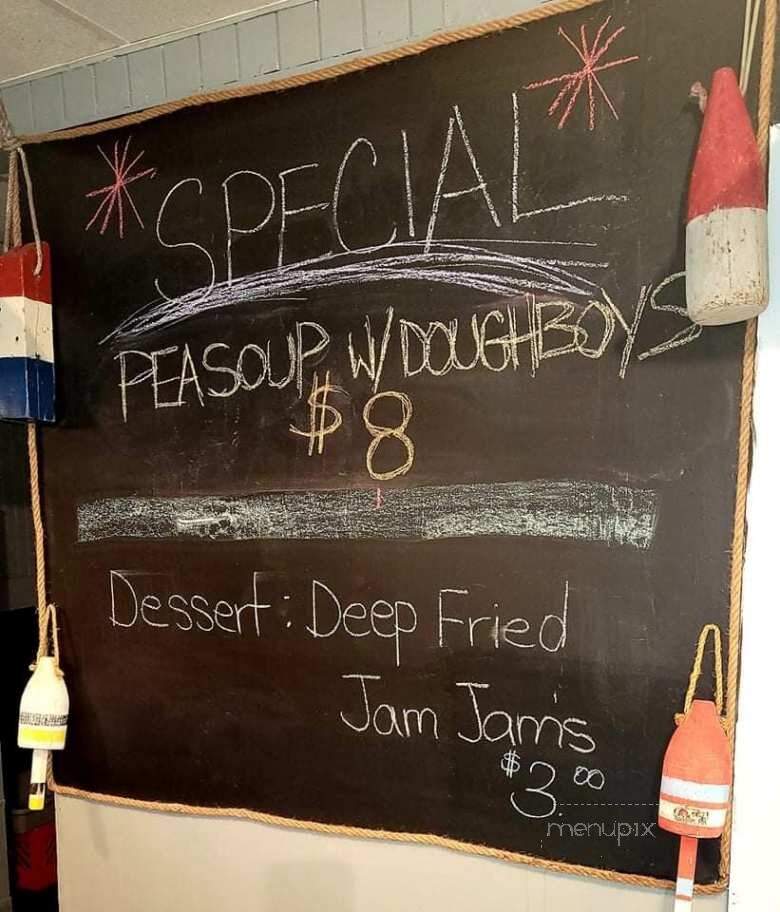 SPECIAL
PEA SOUP W/ DOUGHBOYS
$8
Dessert: Deep Fried
Jam Jam's
$3.00
menupix